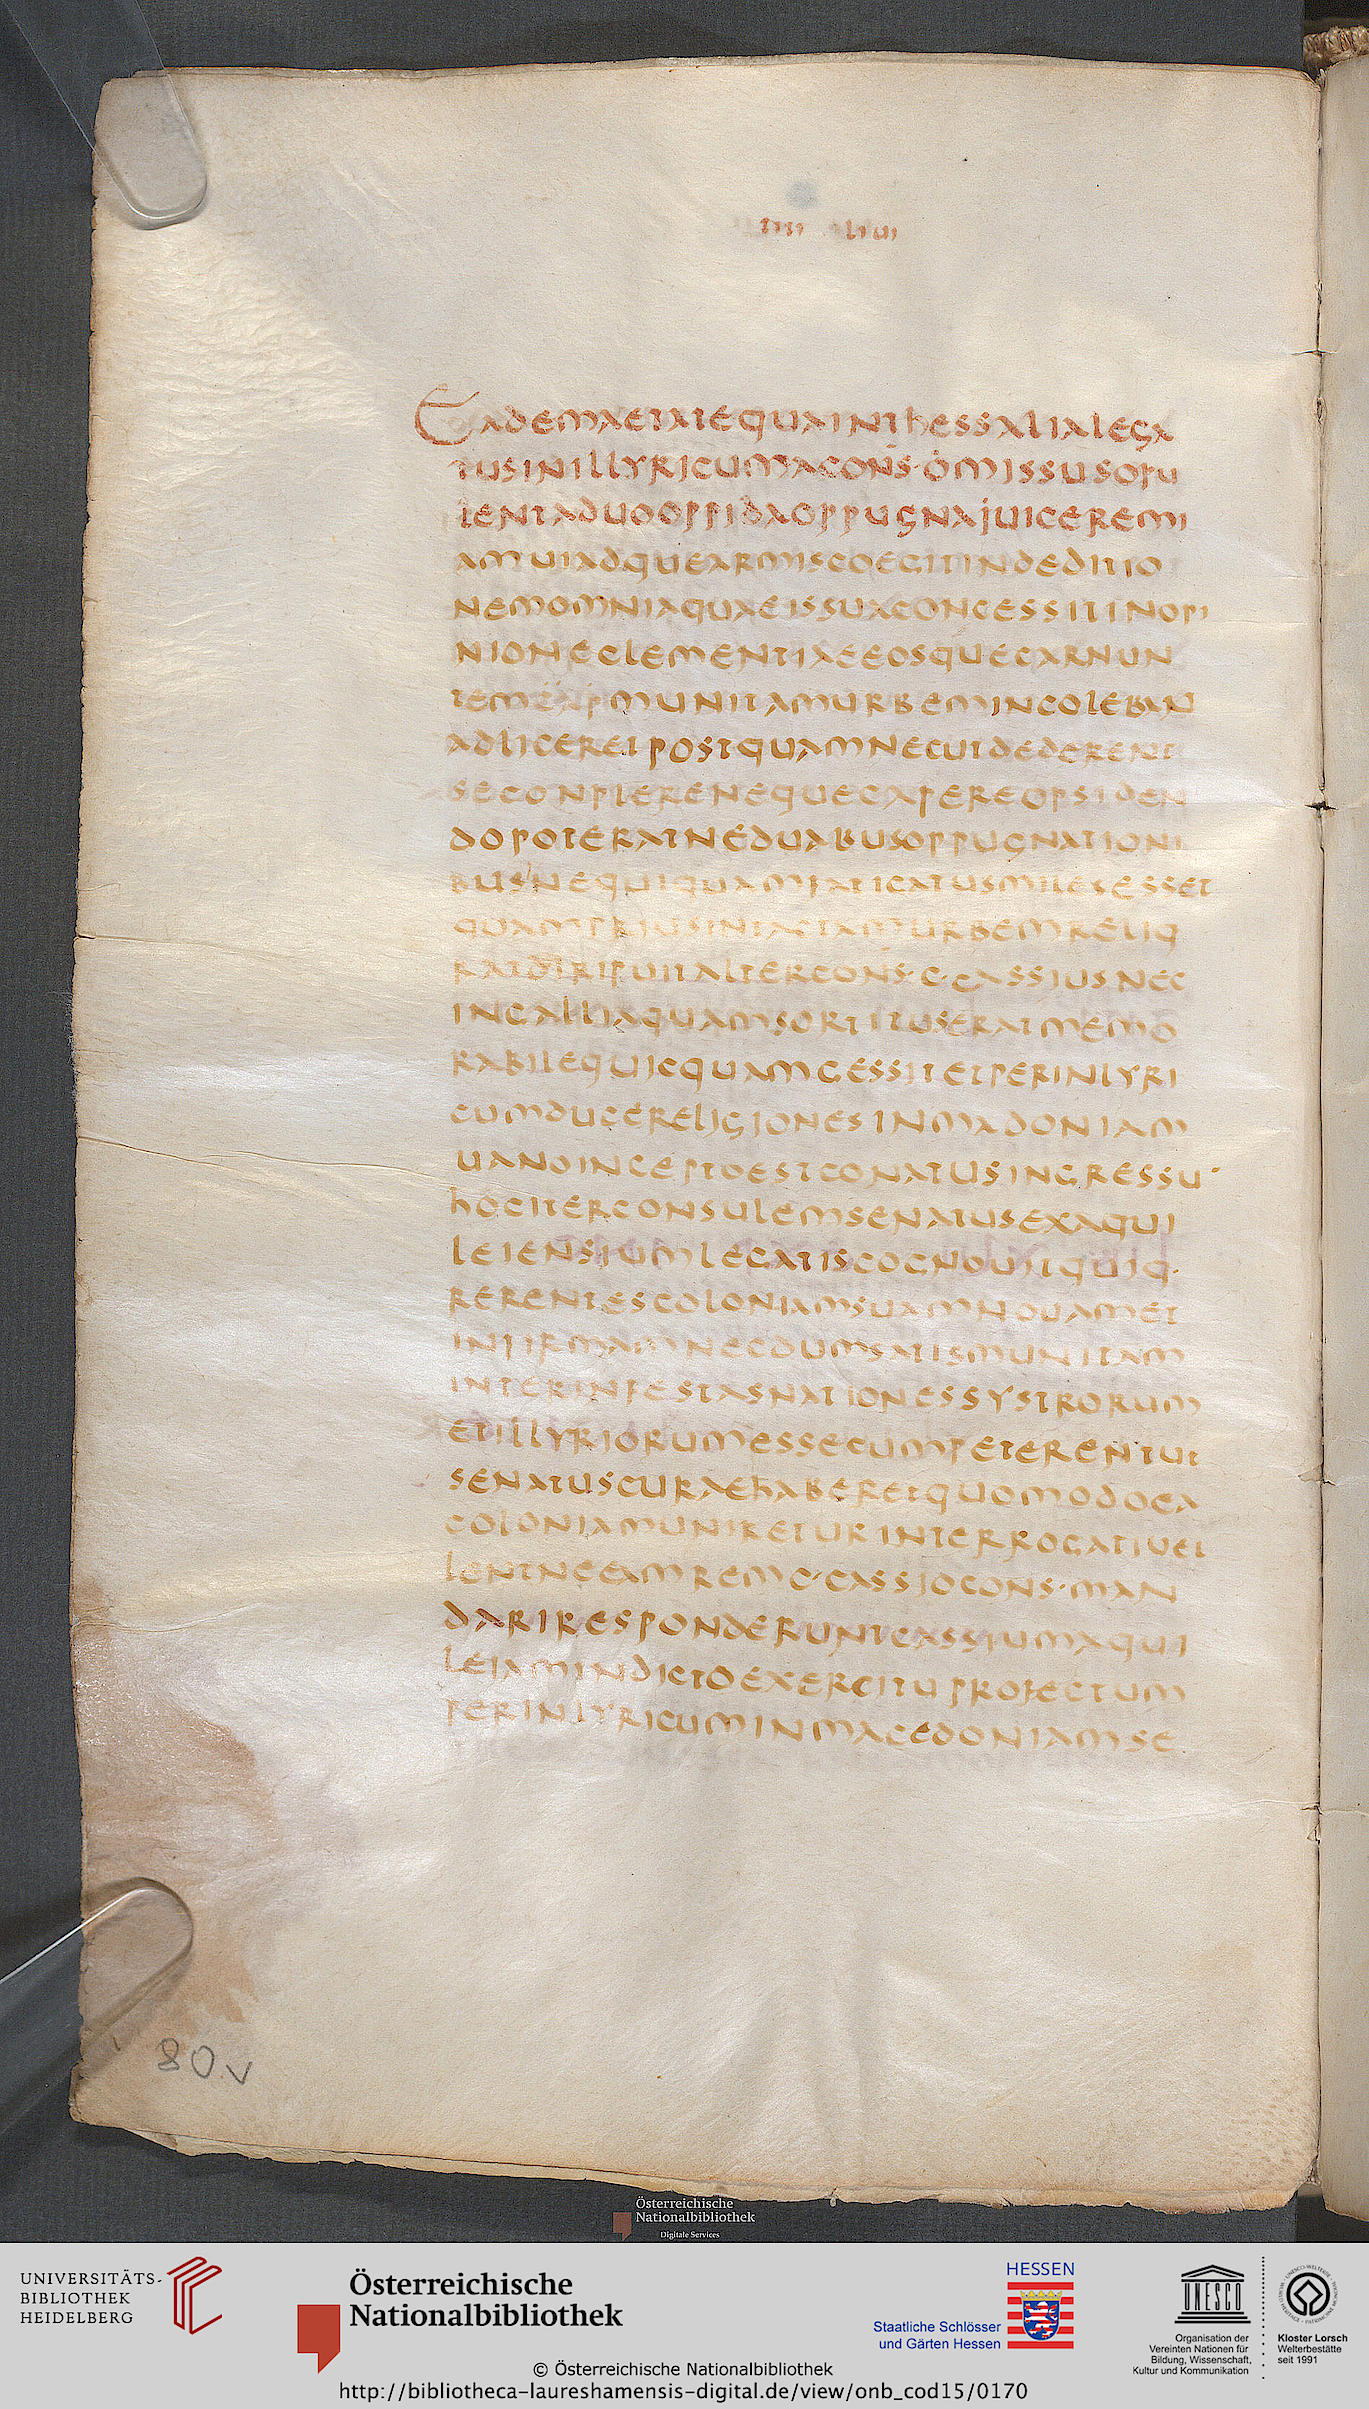 EADEMAETATEQUAINTHESSALIALEGA
TUSINILLYRICUMACONS·OMISSUSOPU
LENTADUOOPPIDAOPPUGNAJUICEREMI
AMUIADQUEARMISCOEGITINDEDITIO
NEMOMNIAQUAEISSUACONCESSITINOPI
NIONECLEMENTIAEEOSQUECARNUN
MUNITAMURBEMINCOLEBAN
ADLICERETPOSTQUAMNECUTDEDERENT
SECONPLERENEQUECAPEREOPSIDEN
DOPOTERATNEDUABUSOPPUGNATIONI
BUSNEQUIQUAMFATICATUSMILESESSET
QUAMPRIUSINTACTAMURBEMRELIQ
RATDIRIPUITALTERCONS·C·CASSIUSNEC
INGALLIAQUAMSORTITUSERATMEMO
RABILEQUICQUAMGESSITETPERINLYRI
CUMDUCERELIGIONESINMADONIAM
UANOINCEPTOESTCONATUSINGRESSU
HOCITERCONSULEMSENATUSEXAQUI
LEIENSIUMLEGATISCOGNOUITQUIQ·
RERENTESCOLONIAMSUAMNOUAMET
INFIRMAMNECDUMSATISMUNITAM
INTERINFESTASNATIONESSYSTRORUM
ETILLYRIORUMESSECUMPETERENTUT
SENATUSCURAEHABERETQUOMODOEA
COLONIAMUNIRETURINTERROGATIUEL
LENTNEEAMREMC·CASSIOCONS·MAN
DARIRESPONDERUNTCASSIUMAQUI
LEIAMINDICTOEXERCITUPROFECTUM
PERINLYRICUMINMACEDONIAMSE
80v
Österreichische
Nationalbibliothek
Digitale Services
UNIVERSITÄTS-
BIBLIOTHEK
HEIDELBERG
Österreichische
Nationalbibliothek
HESSEN
Staatliche Schlösser
und Gärten Hessen
UNESCO
Organisation der
Vereinten Nationen für
Bildung, Wissenschaft,
Kultur und Kommunikation
Kloster Lorsch
Welterbestätte
seit 1991
© Österreichische Nationalbibliothek
http://bibliotheca-laureshamensis-digital.de/view/onb_cod15/0170